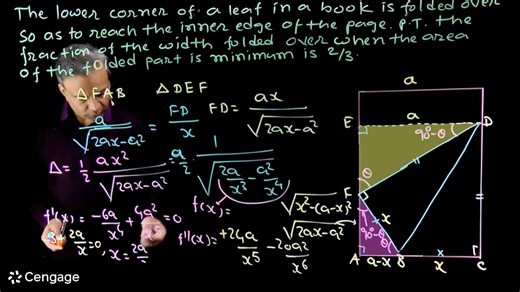 The lower corner of a leaf in a book is folded over
So as to reach the inner edge of the page. P.T. the
fraction of the width folded over when the area
of the folded part is minimum is 2/3.
Δ FAB Δ DEF
a/√(2ax-a²) = FD/x FD = ax/√(2ax-a²)
Δ = 1/2 ax²/√(2ax-a²) = a/2 1/√(2a/x³ - a²/x⁴)
f(x) =
f'(x) = -6a/x⁴ + 4a²/ = 0
2a/x = 0, x = 2a/
f''(x) = +24a/x⁵ - 20a²/x⁶
√(x²-(a-x)²)
√(2ax-a²)
a
E a D
90°-θ
θ
F
x
90°-θ
θ
A a-x B x C
Cengage